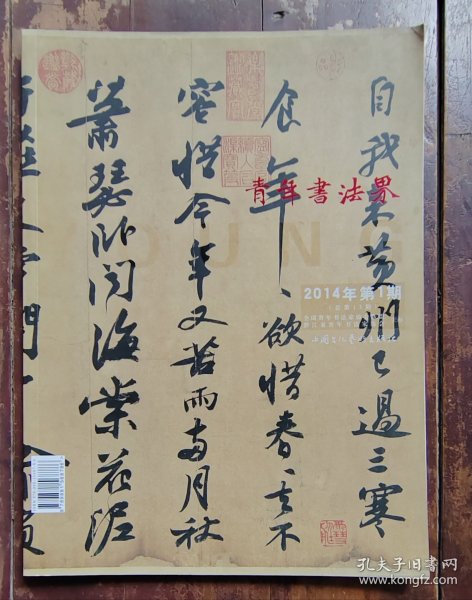 自我来黄州已過三寒
食年、欲惜春、去不
容惜今年又苦雨兩月秋
蕭瑟卧聞海棠花泥
青年書法界
YOUNG
2014年第1期
孔夫子旧书网
www.kongfz.com